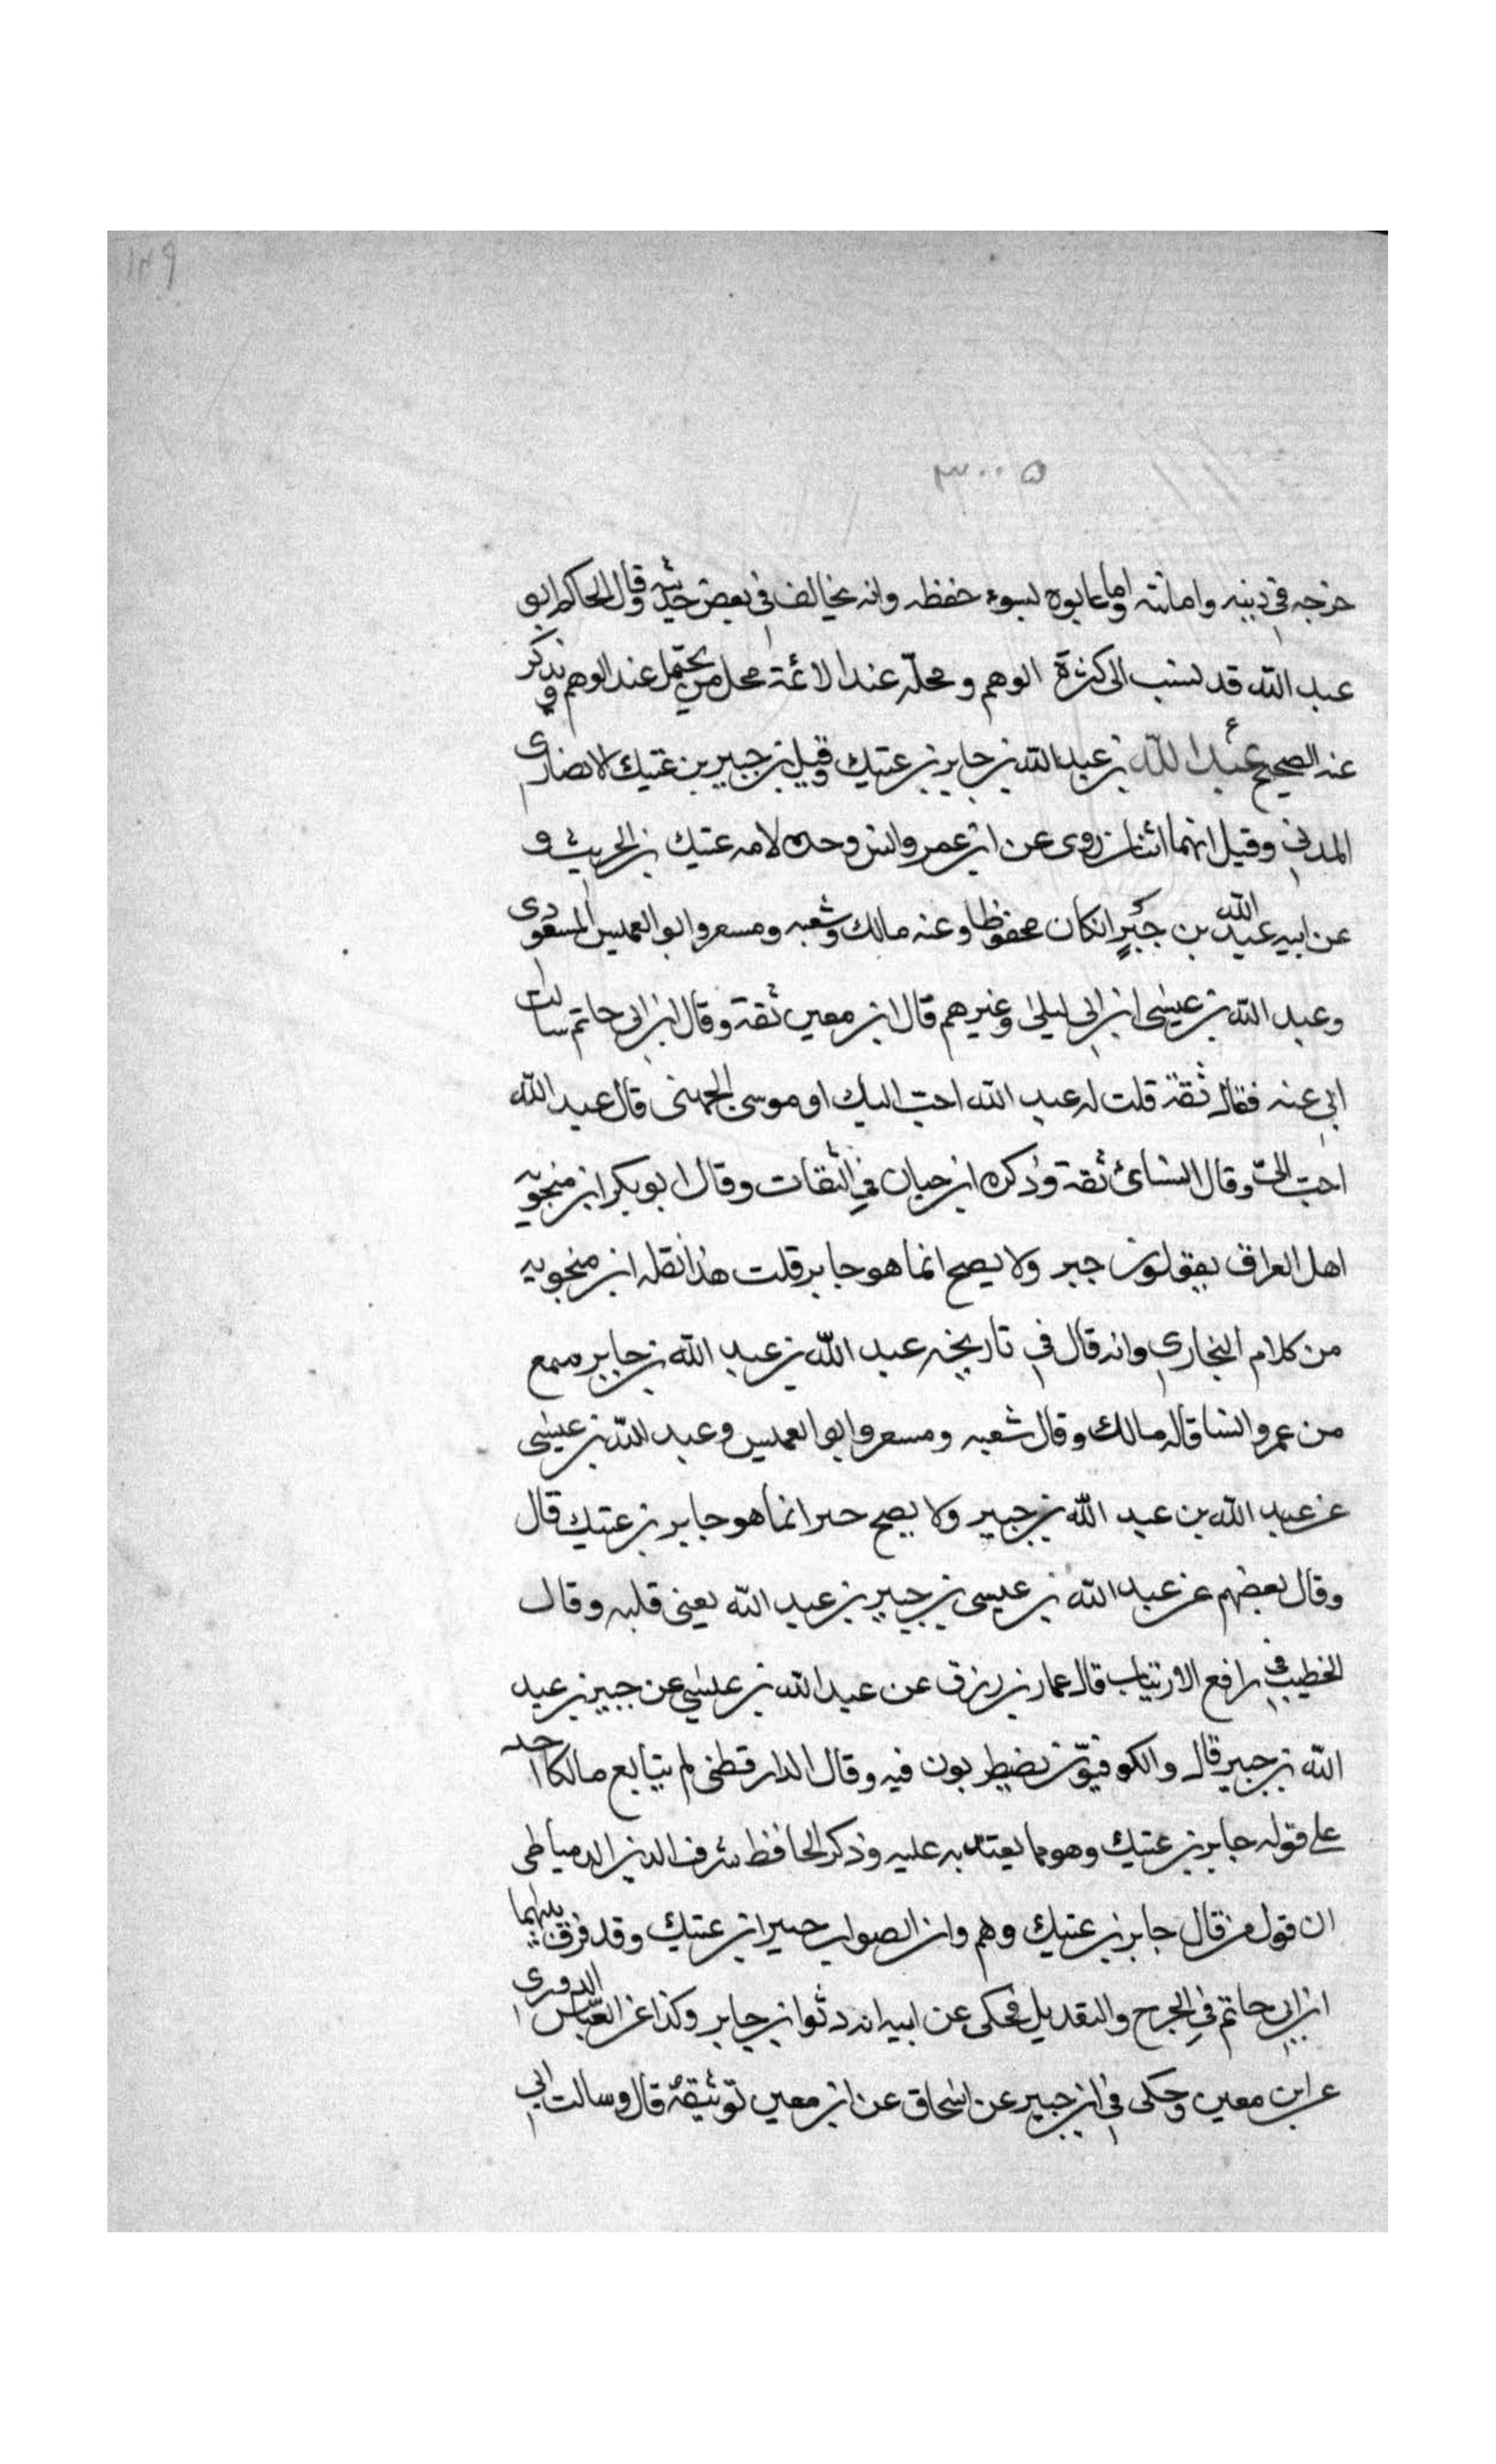 ١٢٩
٣٠٠٥
خرجه في دينه وامانته وانما عابوه لسوء حفظه وانه يخالف في بعض حديثه وقال الحاكم ابو
عبد الله قد نسب الى كثرة الوهم ومحله عند الائمة محل من يحتمل عند الوهم ويذكر
عند الصحيح ع عبد الله بن عبد الله بن جابر بن عتيك وقيل بن جبير بن عتيك الانصاري
المدني وقيل انهما اثنان روى عن ابن عمر وانس وجده لامه عتيك بن الحريث و
عن ابيه عبد الله بن جبير ان كان محفوظا وعنه مالك وشعبه ومسعر وابو العميس المسعودي
وعبد الله بن عيسى ابن ابي ليلى وغيرهم قال ابن معين ثقة وقال ابن ابي حاتم سالت
ابي عنه فقال ثقة قلت له عبد الله احب اليك او موسى الجهني قال عبد الله
احب الي وقال النسائي ثقة وذكره ابن حبان في الثقات وقال ابو بكر ابن منجويه
اهل العراق يقولون جبر ولا يصح انما هو جابر قلت هذا نقله ابن منجويه
من كلام البخاري وانه قال في تاريخه عبد الله بن عبد الله بن جابر سمع
من عمر وانسا قاله مالك وقال شعبه ومسعر وابو العميس وعبد الله بن عيسى
عن عبد الله بن عبد الله بن جبير ولا يصح حبر انما هو جابر بن عتيك قال
وقال بعضهم عن عبد الله بن عيسى بن جبير بن عبد الله يعني قلبه وقال
الخطيب في رافع الارتياب قال عمار بن رزق عن عبد الله بن عيسى عن جبير بن عبد
الله بن جبير قال والكوفيون يضطربون فيه وقال الدارقطني لم يتابع مالكا احد
على قوله جابر بن عتيك وهو مما يعتد به عليه وذكر الحافظ شرف الدين الدمياطي
ان قول من قال جابر بن عتيك وهم وان الصواب جبير ابن عتيك وقد فرق بينهما
ابن ابي حاتم في الجرح والتعديل فحكى عن ابيه انه وثق ابن جابر وكذا عن العباس الدوري
عن ابن معين وحكى في ابن جبير عن اسحاق عن ابن معين توثيقه قال وسالت ابي